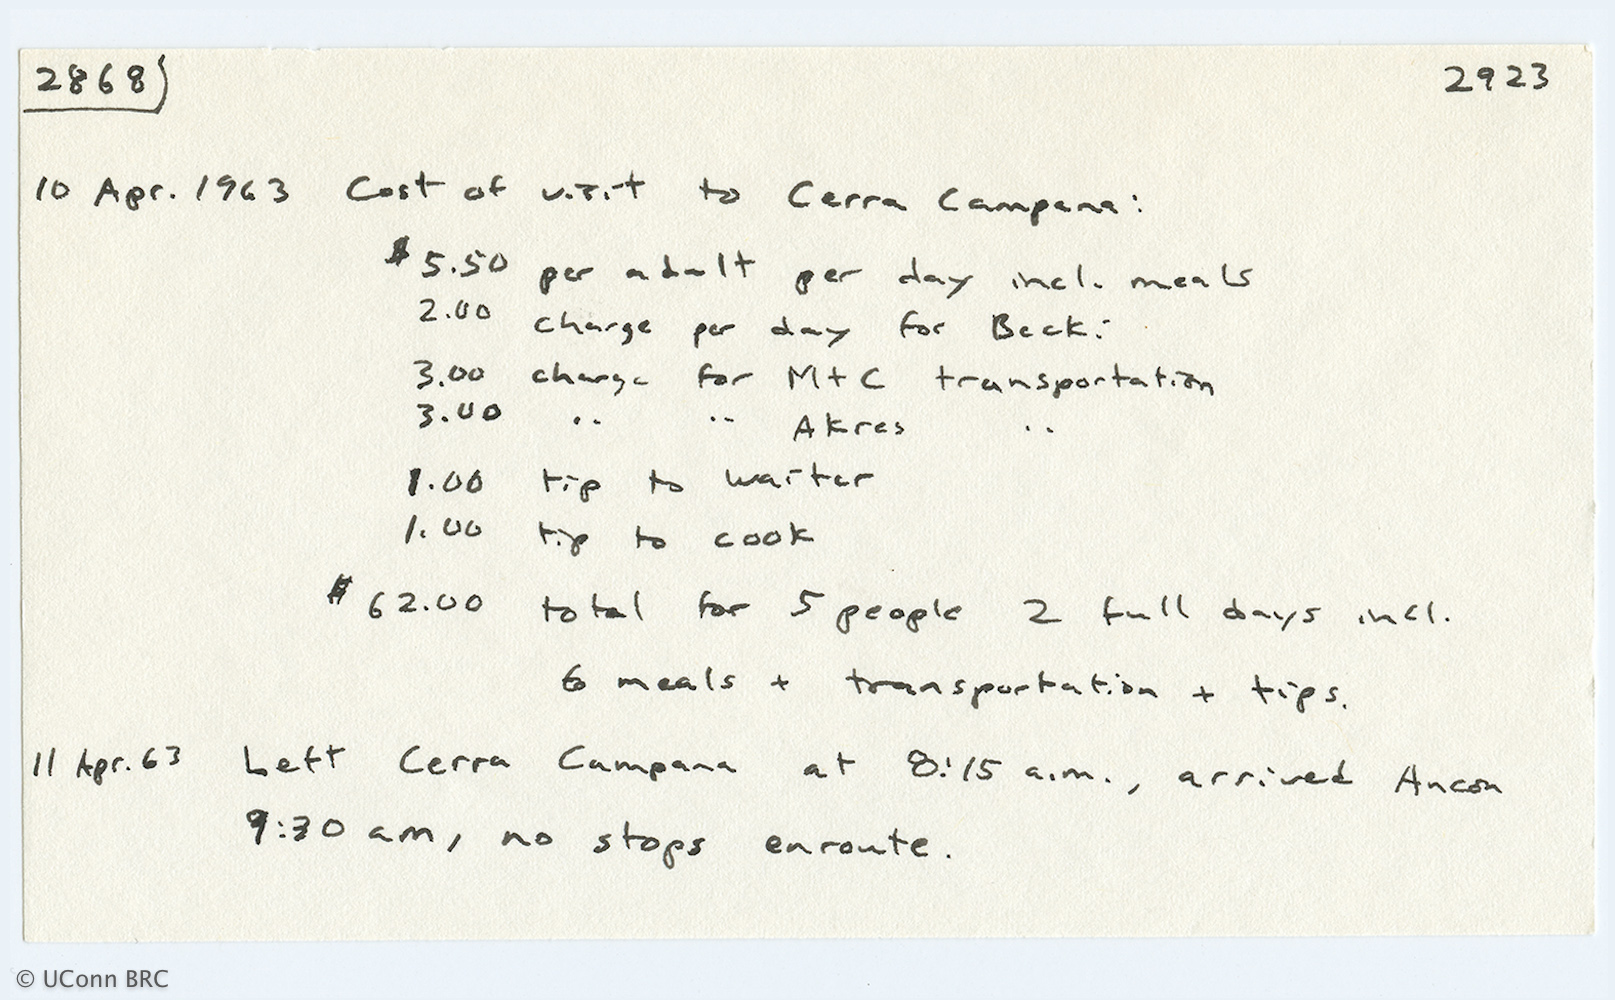 2868 2923
10 Apr. 1963 Cost of visit to Cerra Campana:
$5.50 per adult per day incl. meals
2.00 charge per day for Becki
3.00 charge for M+C transportation
3.00 " " Akres "
1.00 tip to waiter
1.00 tip to cook
$62.00 total for 5 people 2 full days incl.
6 meals + transportation + tips.
11 Apr. 63 Left Cerra Campana at 8:15 a.m., arrived Ancon
9:30 am, no stops enroute.
© UConn BRC